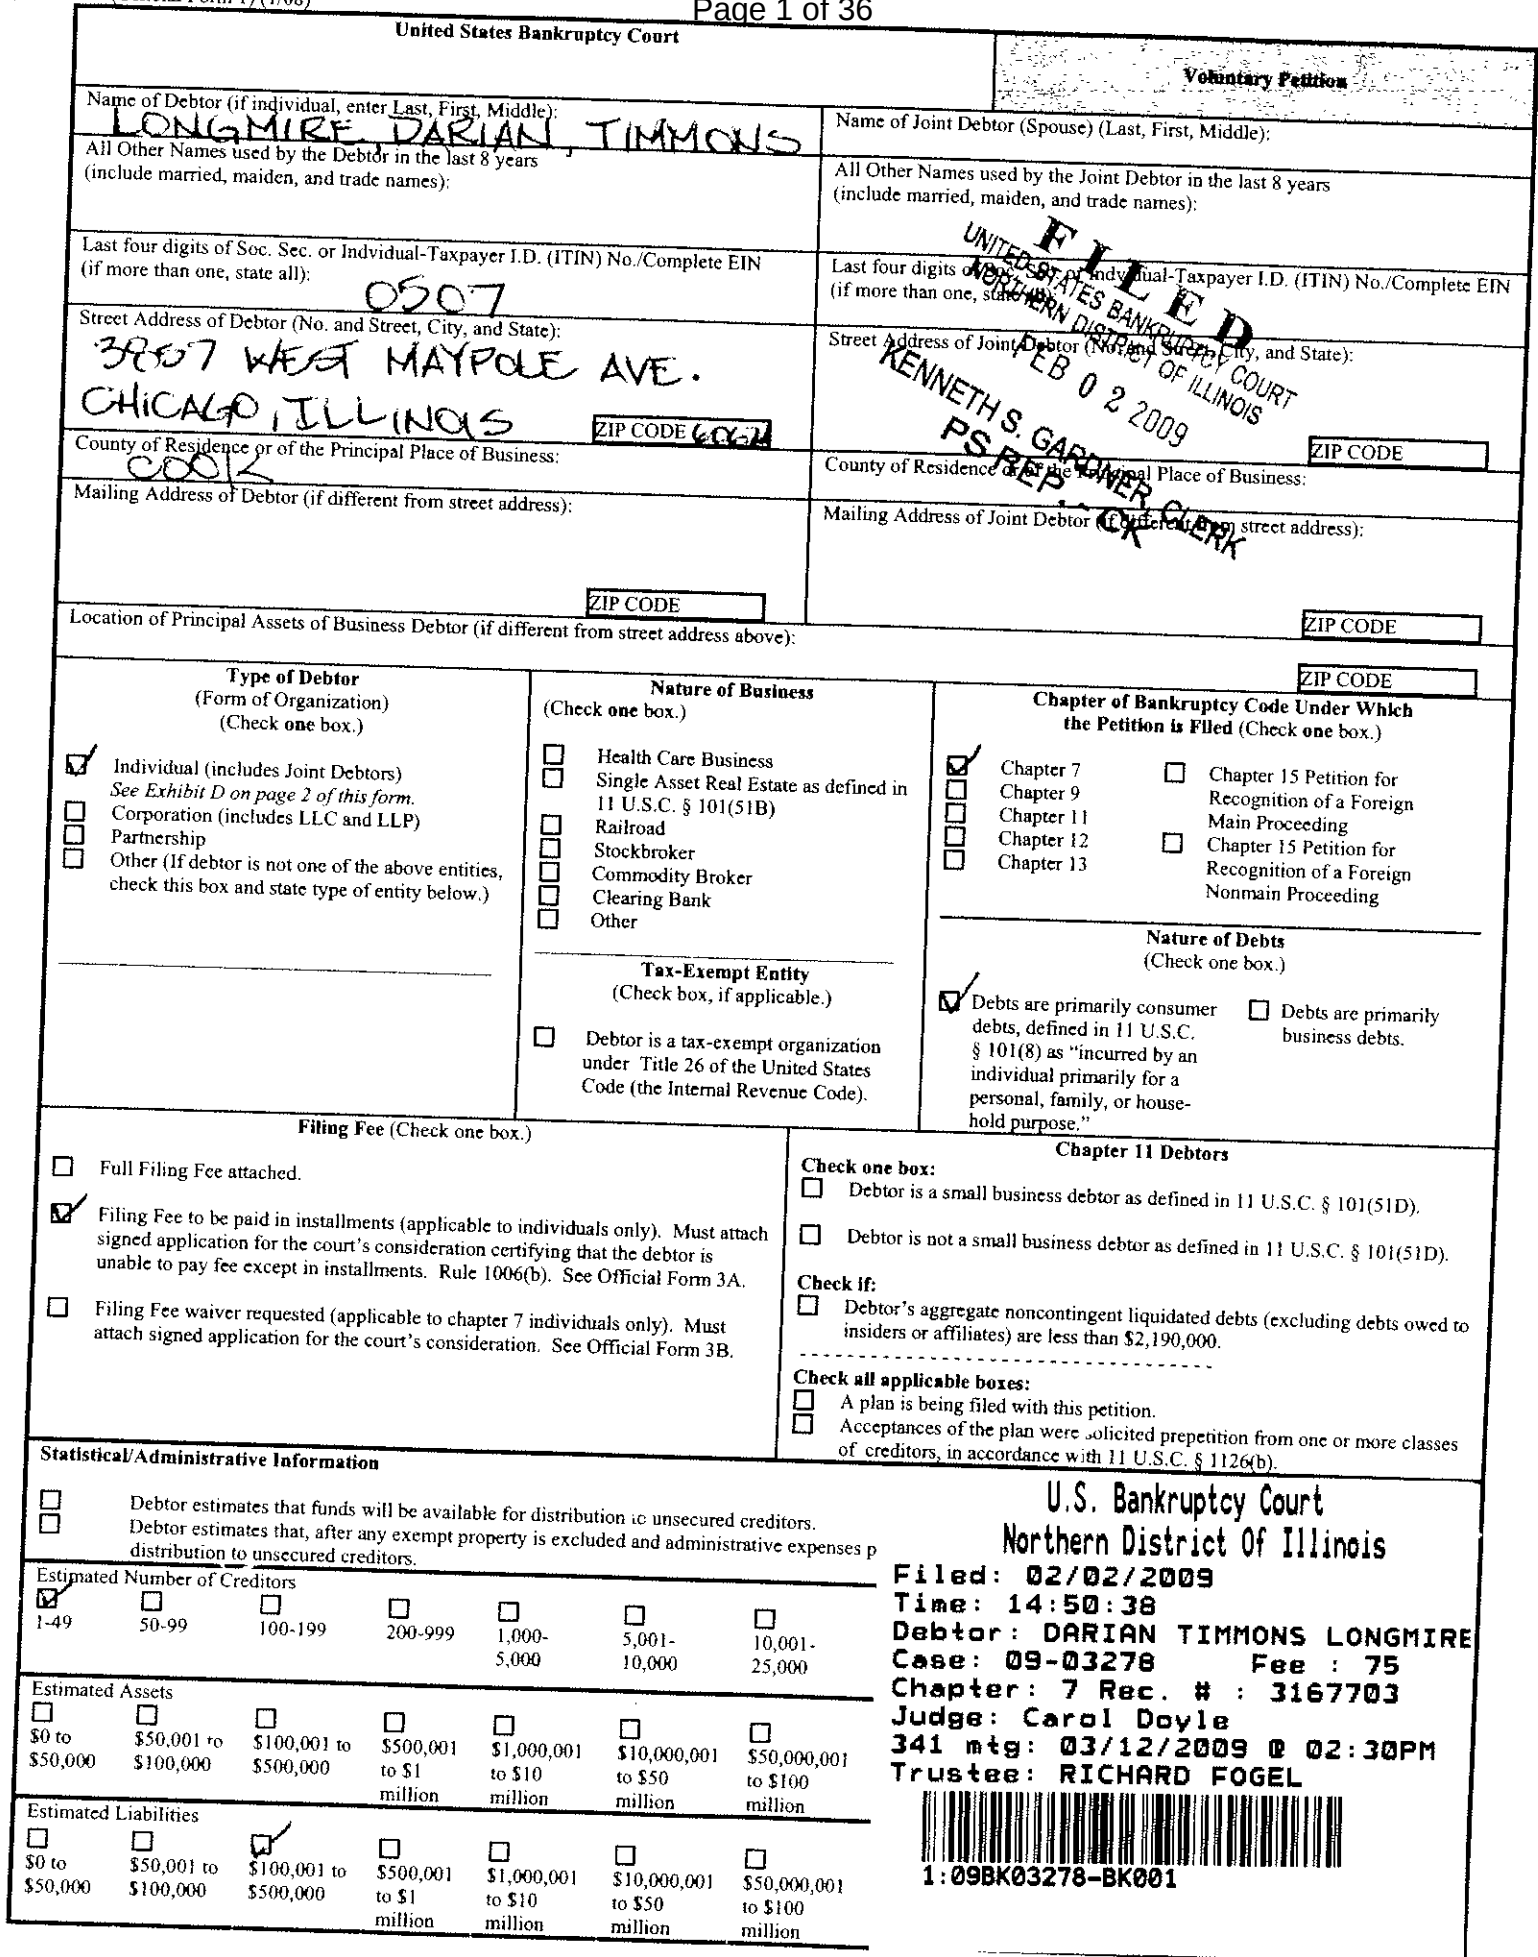 Page 1 of 36
United States Bankruptcy Court
Voluntary Petition
Name of Debtor (if individual, enter Last, First, Middle):
LONGMIRE, DARIAN, TIMMONS
Name of Joint Debtor (Spouse) (Last, First, Middle):
All Other Names used by the Debtor in the last 8 years
(include married, maiden, and trade names):
All Other Names used by the Joint Debtor in the last 8 years
(include married, maiden, and trade names):
Last four digits of Soc. Sec. or Indvidual-Taxpayer I.D. (ITIN) No./Complete EIN
(if more than one, state all):
0507
Last four digits of Soc. Sec. or Indvidual-Taxpayer I.D. (ITIN) No./Complete EIN
(if more than one, state all):
Street Address of Debtor (No. and Street, City, and State):
3857 WEST MAYPOLE AVE.
CHICAGO, ILLINOIS
ZIP CODE 60624
Street Address of Joint Debtor (No. and Street, City, and State):
ZIP CODE
FILED
UNITED STATES BANKRUPTCY COURT
NORTHERN DISTRICT OF ILLINOIS
FEB 02 2009
KENNETH S. GARDNER, CLERK
PS REP. - CK
County of Residence or of the Principal Place of Business:
COOK
County of Residence or of the Principal Place of Business:
Mailing Address of Debtor (if different from street address):
ZIP CODE
Mailing Address of Joint Debtor (if different from street address):
ZIP CODE
Location of Principal Assets of Business Debtor (if different from street address above):
ZIP CODE
Type of Debtor
(Form of Organization)
(Check one box.)
Individual (includes Joint Debtors)
See Exhibit D on page 2 of this form.
Corporation (includes LLC and LLP)
Partnership
Other (If debtor is not one of the above entities,
check this box and state type of entity below.)
Nature of Business
(Check one box.)
Health Care Business
Single Asset Real Estate as defined in
11 U.S.C. § 101(51B)
Railroad
Stockbroker
Commodity Broker
Clearing Bank
Other
Tax-Exempt Entity
(Check box, if applicable.)
Debtor is a tax-exempt organization
under Title 26 of the United States
Code (the Internal Revenue Code).
Chapter of Bankruptcy Code Under Which
the Petition is Filed (Check one box.)
Chapter 7
Chapter 9
Chapter 11
Chapter 12
Chapter 13
Chapter 15 Petition for
Recognition of a Foreign
Main Proceeding
Chapter 15 Petition for
Recognition of a Foreign
Nonmain Proceeding
Nature of Debts
(Check one box.)
Debts are primarily consumer
debts, defined in 11 U.S.C.
§ 101(8) as "incurred by an
individual primarily for a
personal, family, or house-
hold purpose."
Debts are primarily
business debts.
Filing Fee (Check one box.)
Full Filing Fee attached.
Filing Fee to be paid in installments (applicable to individuals only). Must attach
signed application for the court's consideration certifying that the debtor is
unable to pay fee except in installments. Rule 1006(b). See Official Form 3A.
Filing Fee waiver requested (applicable to chapter 7 individuals only). Must
attach signed application for the court's consideration. See Official Form 3B.
Chapter 11 Debtors
Check one box:
Debtor is a small business debtor as defined in 11 U.S.C. § 101(51D).
Debtor is not a small business debtor as defined in 11 U.S.C. § 101(51D).
Check if:
Debtor's aggregate noncontingent liquidated debts (excluding debts owed to
insiders or affiliates) are less than $2,190,000.
Check all applicable boxes:
A plan is being filed with this petition.
Acceptances of the plan were solicited prepetition from one or more classes
of creditors, in accordance with 11 U.S.C. § 1126(b).
Statistical/Administrative Information
Debtor estimates that funds will be available for distribution to unsecured creditors.
Debtor estimates that, after any exempt property is excluded and administrative expenses p
distribution to unsecured creditors.
Estimated Number of Creditors
1-49 50-99 100-199 200-999 1,000- 5,001- 10,001-
5,000 10,000 25,000
Estimated Assets
$0 to $50,001 to $100,001 to $500,001 $1,000,001 $10,000,001 $50,000,001
$50,000 $100,000 $500,000 to $1 to $10 to $50 to $100
million million million million
Estimated Liabilities
$0 to $50,001 to $100,001 to $500,001 $1,000,001 $10,000,001 $50,000,001
$50,000 $100,000 $500,000 to $1 to $10 to $50 to $100
million million million million
U.S. Bankruptcy Court
Northern District Of Illinois
Filed: 02/02/2009
Time: 14:50:38
Debtor: DARIAN TIMMONS LONGMIRE
Case: 09-03278 Fee : 75
Chapter: 7 Rec. # : 3167703
Judge: Carol Doyle
341 mtg: 03/12/2009 @ 02:30PM
Trustee: RICHARD FOGEL
1:09BK03278-BK001